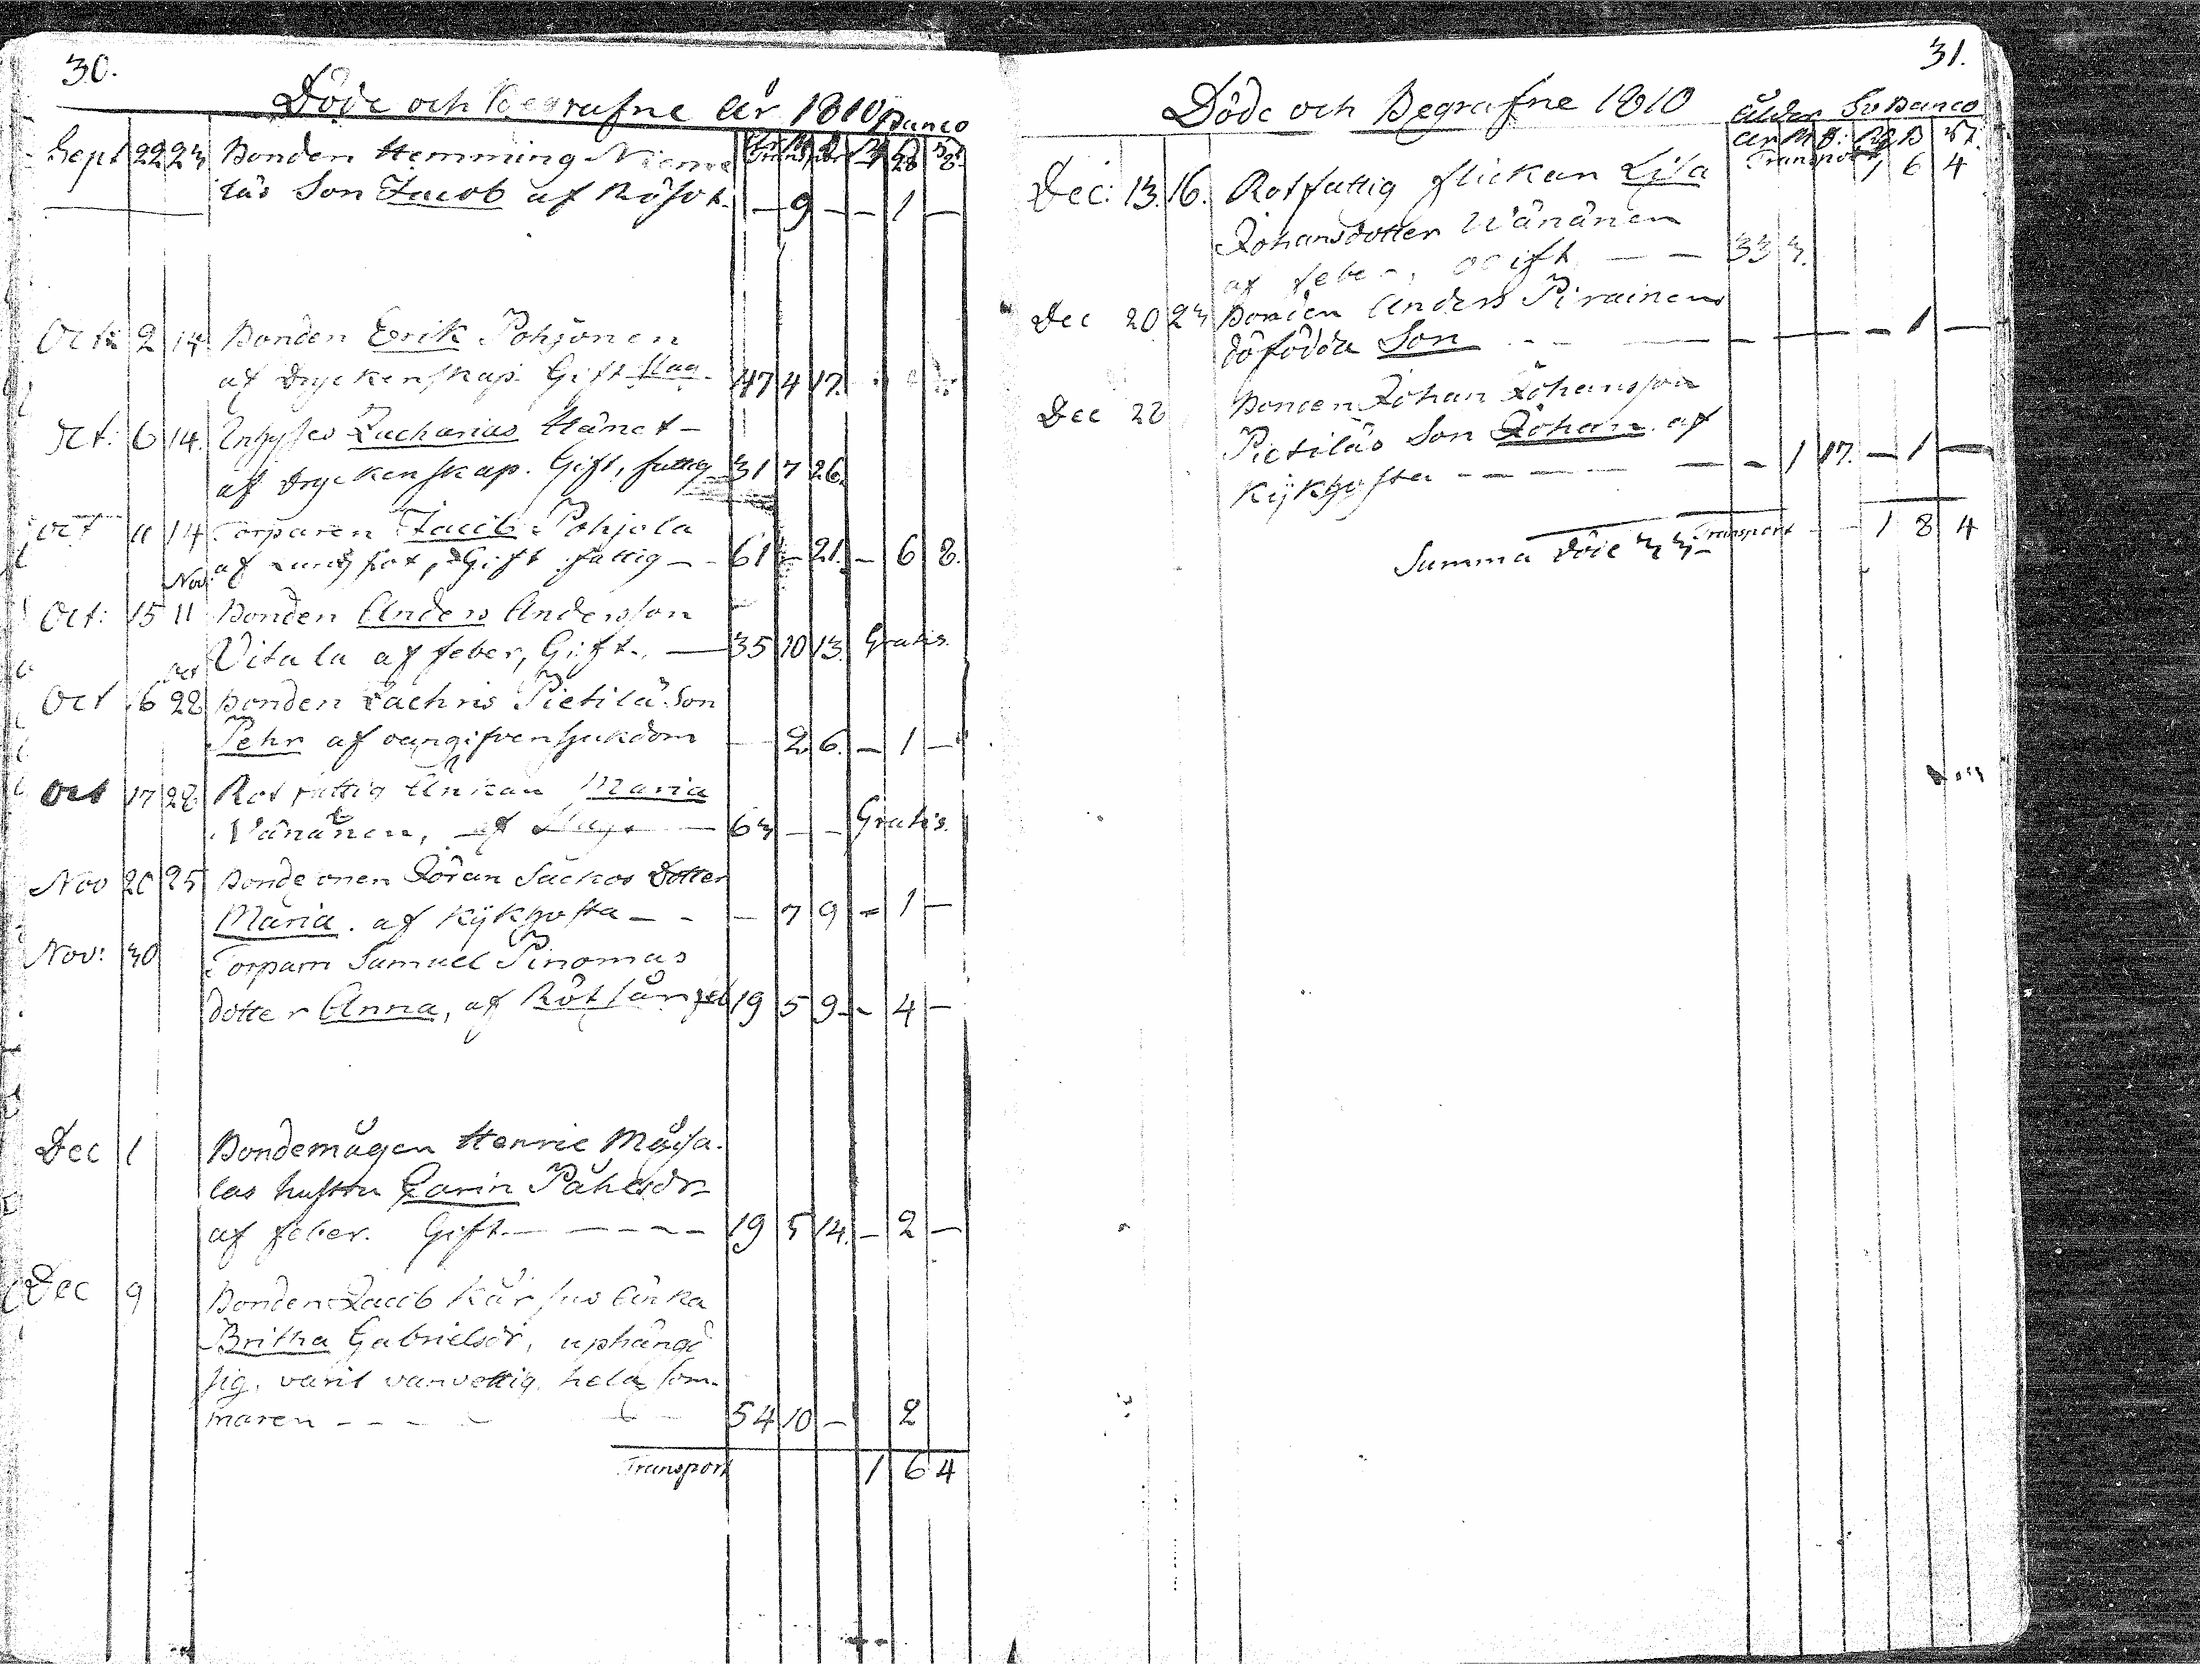 30.
Döde och Begrafne år 1810 Banco
Transport 28 8.
Sept 22 23 Bonden Hemming Nieme
läs Son Jacob af Rösot. — 9 — — 1 —
Oct: 2 14 Bonden Erik Pohjonen
af Dryckenskap. Gift Slag. 47 4 17.
Oct: 6 14. Inhyses Zacharias
af Dryckenskap. Gift, fattig 31 7 26.
Oct 11 14 Torparen Jacob Pohjola
af Lungsot, Gift fattig — 61 — 21. — 6 8.
Nov:
Oct: 15 11 Bonden Anders Andersson
Vitala af feber, Gift. — 35 10 13. Gratis.
Oct
Oct 16 28 Bonden Zachris Pietilä Son
Pehr af oangifven sjukdom — 2 6. — 1 —
Oct 17 28. Rotfattig Änkan Maria
Wänänen, af Slag — 63 — — Gratis.
Nov 20 25 Bonde Jöran Säckos Dotter
Maria. af Kijkhosta — — — 7 9 — 1 —
Nov: 30 Torparn Samuel Pinomas
dotter Anna, af Rötfäurfeb 19 5 9 — 4 —
Dec 1 Bondemågen Henric
las hustru Carin Påhlsdr
af feber. Gift. — — — — — 19 5 14. — 2 —
Dec 9 Bonden Jacob Kärjus änka
Britha Gabrielsdr, uphängd
sig, varit vanvettig hela som-
maren — — — — 54 10 — 2
Transport 1 6 4
31.
Döde och Begrafne 1810 ålder Sv Banco
år M D: Rg ß st.
Transport 1 6 4
Dec: 13. 16. Rotfattig flickan Lisa
Johansdotter Wänänen
af feber, ogift — — 33 3.
Dec 20 23 Bonden Anders Pirainens
döfödda Son — — — — — — 1 —
Dec 28 Bonden Johan Johansson
Pietiläs Son Johan. af
Kijkhosta — — — — — — 1 17. — 1 —
Transport — — 1 8 4
Summa döde 33